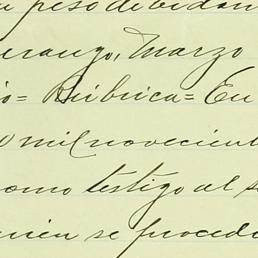 peso debidam
erango, Marzo
io = Rúbrica = En
mil novecient
como testigo al s
uien se procedi